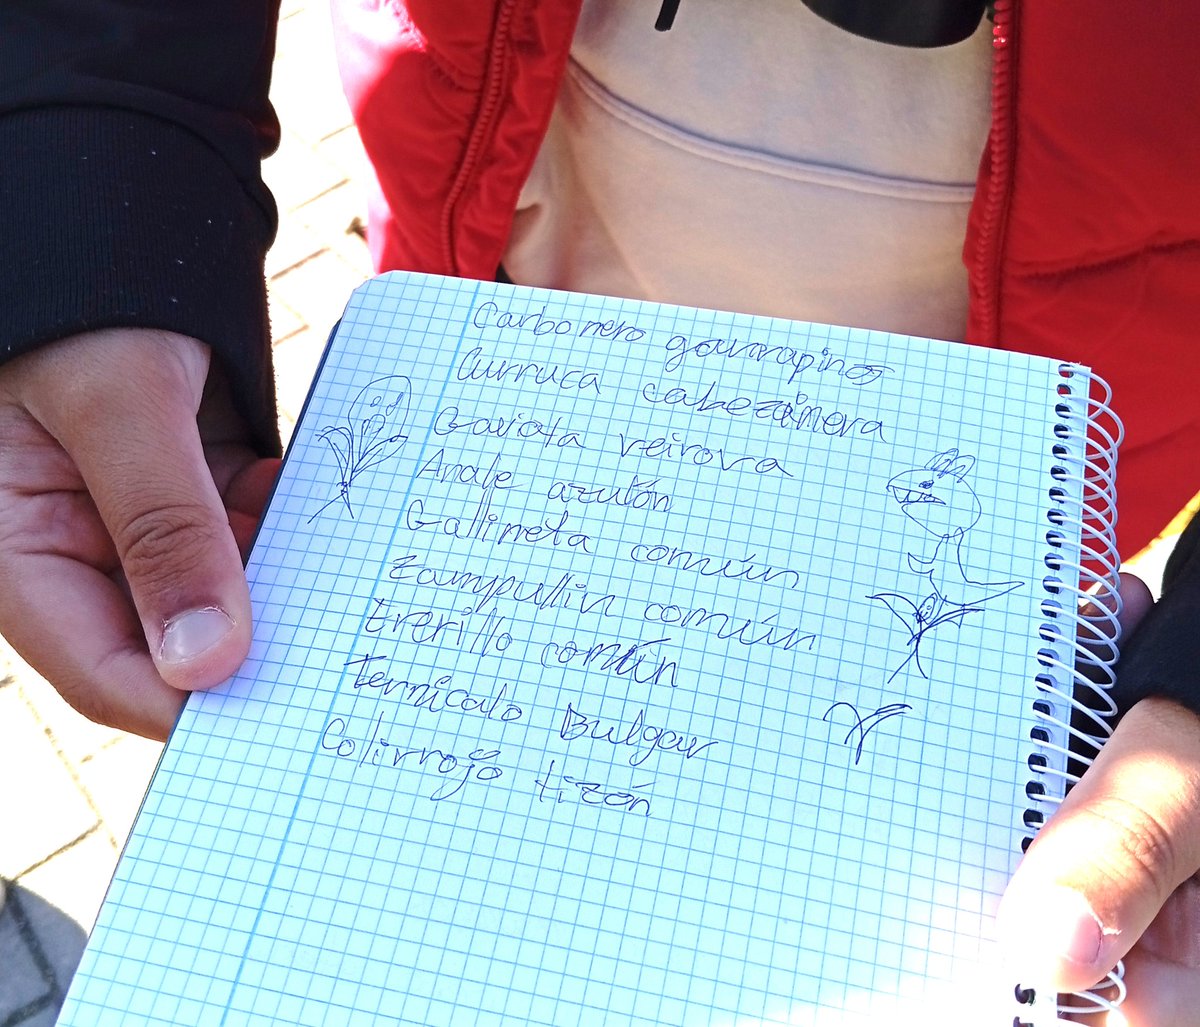 Carbonero garrapinos
Curruca cabezinera
Gaviota reirova
Anale azulón
Gallineta común
Zampullin común
trerillo común
ternicalo Bulgar
Colirrojo tizón